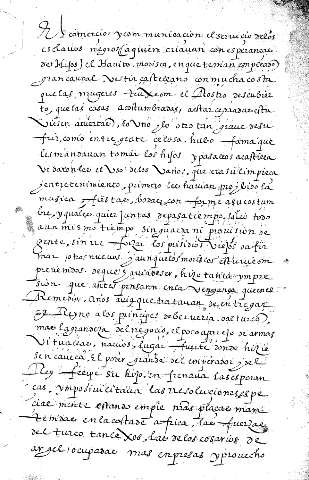 El comercio y comunicacion el servicio de los
esclavos negros (a quien criavan con esperanzas
de hijos) el Habito morisco, en que tenian empleado
gran caudal vestir castellano con mucha costa
que las mugeres truxesen el Rostro descubier
to, que las casas acostumbradas, a estar cerradas estu
viesen abiertas, lo uno y lo otro tan grave de su
frir, como entre gente celosa. hubo fama que
les mandavan tomar los hijos y pasarlos a castilla
vedaronles el uso de los vaños, que era su limpieza
y entretenimiento, primero les havian prohibido la
musica fiestas, bodas, conforme a su costum
bre, y qualesquier juntas de pasatiempo, salio todo
a un mismo tiempo sin guardia ni provision de
gente, sin reforzar los presidios viejos o afir
mar otros nuevos y aunque los moriscos estuviesen
prevenidos de que havia de ser, hizo tanta impre
sion que antes pensaron en la venganza que en el
Remedio, Años avia que tratavan de entregar
el Reyno a los principes de berveria o al turco,
mas la grandeza del negocio, el poco aparejo de armas
vituallas, navios, lugar fuerte donde hizie
sen caveça, El poder grande del emperador y del
Rey felipe su hijo, en frenava las esperan
cas, y mposivilitava las Resoluciones espe
cialmente estando en pie n͠ras plaças man
tenidas en la costa de africa, las fuerzas
del turco tan lexos, las de los cosarios de
argel ocupadas mas en presas y provecho